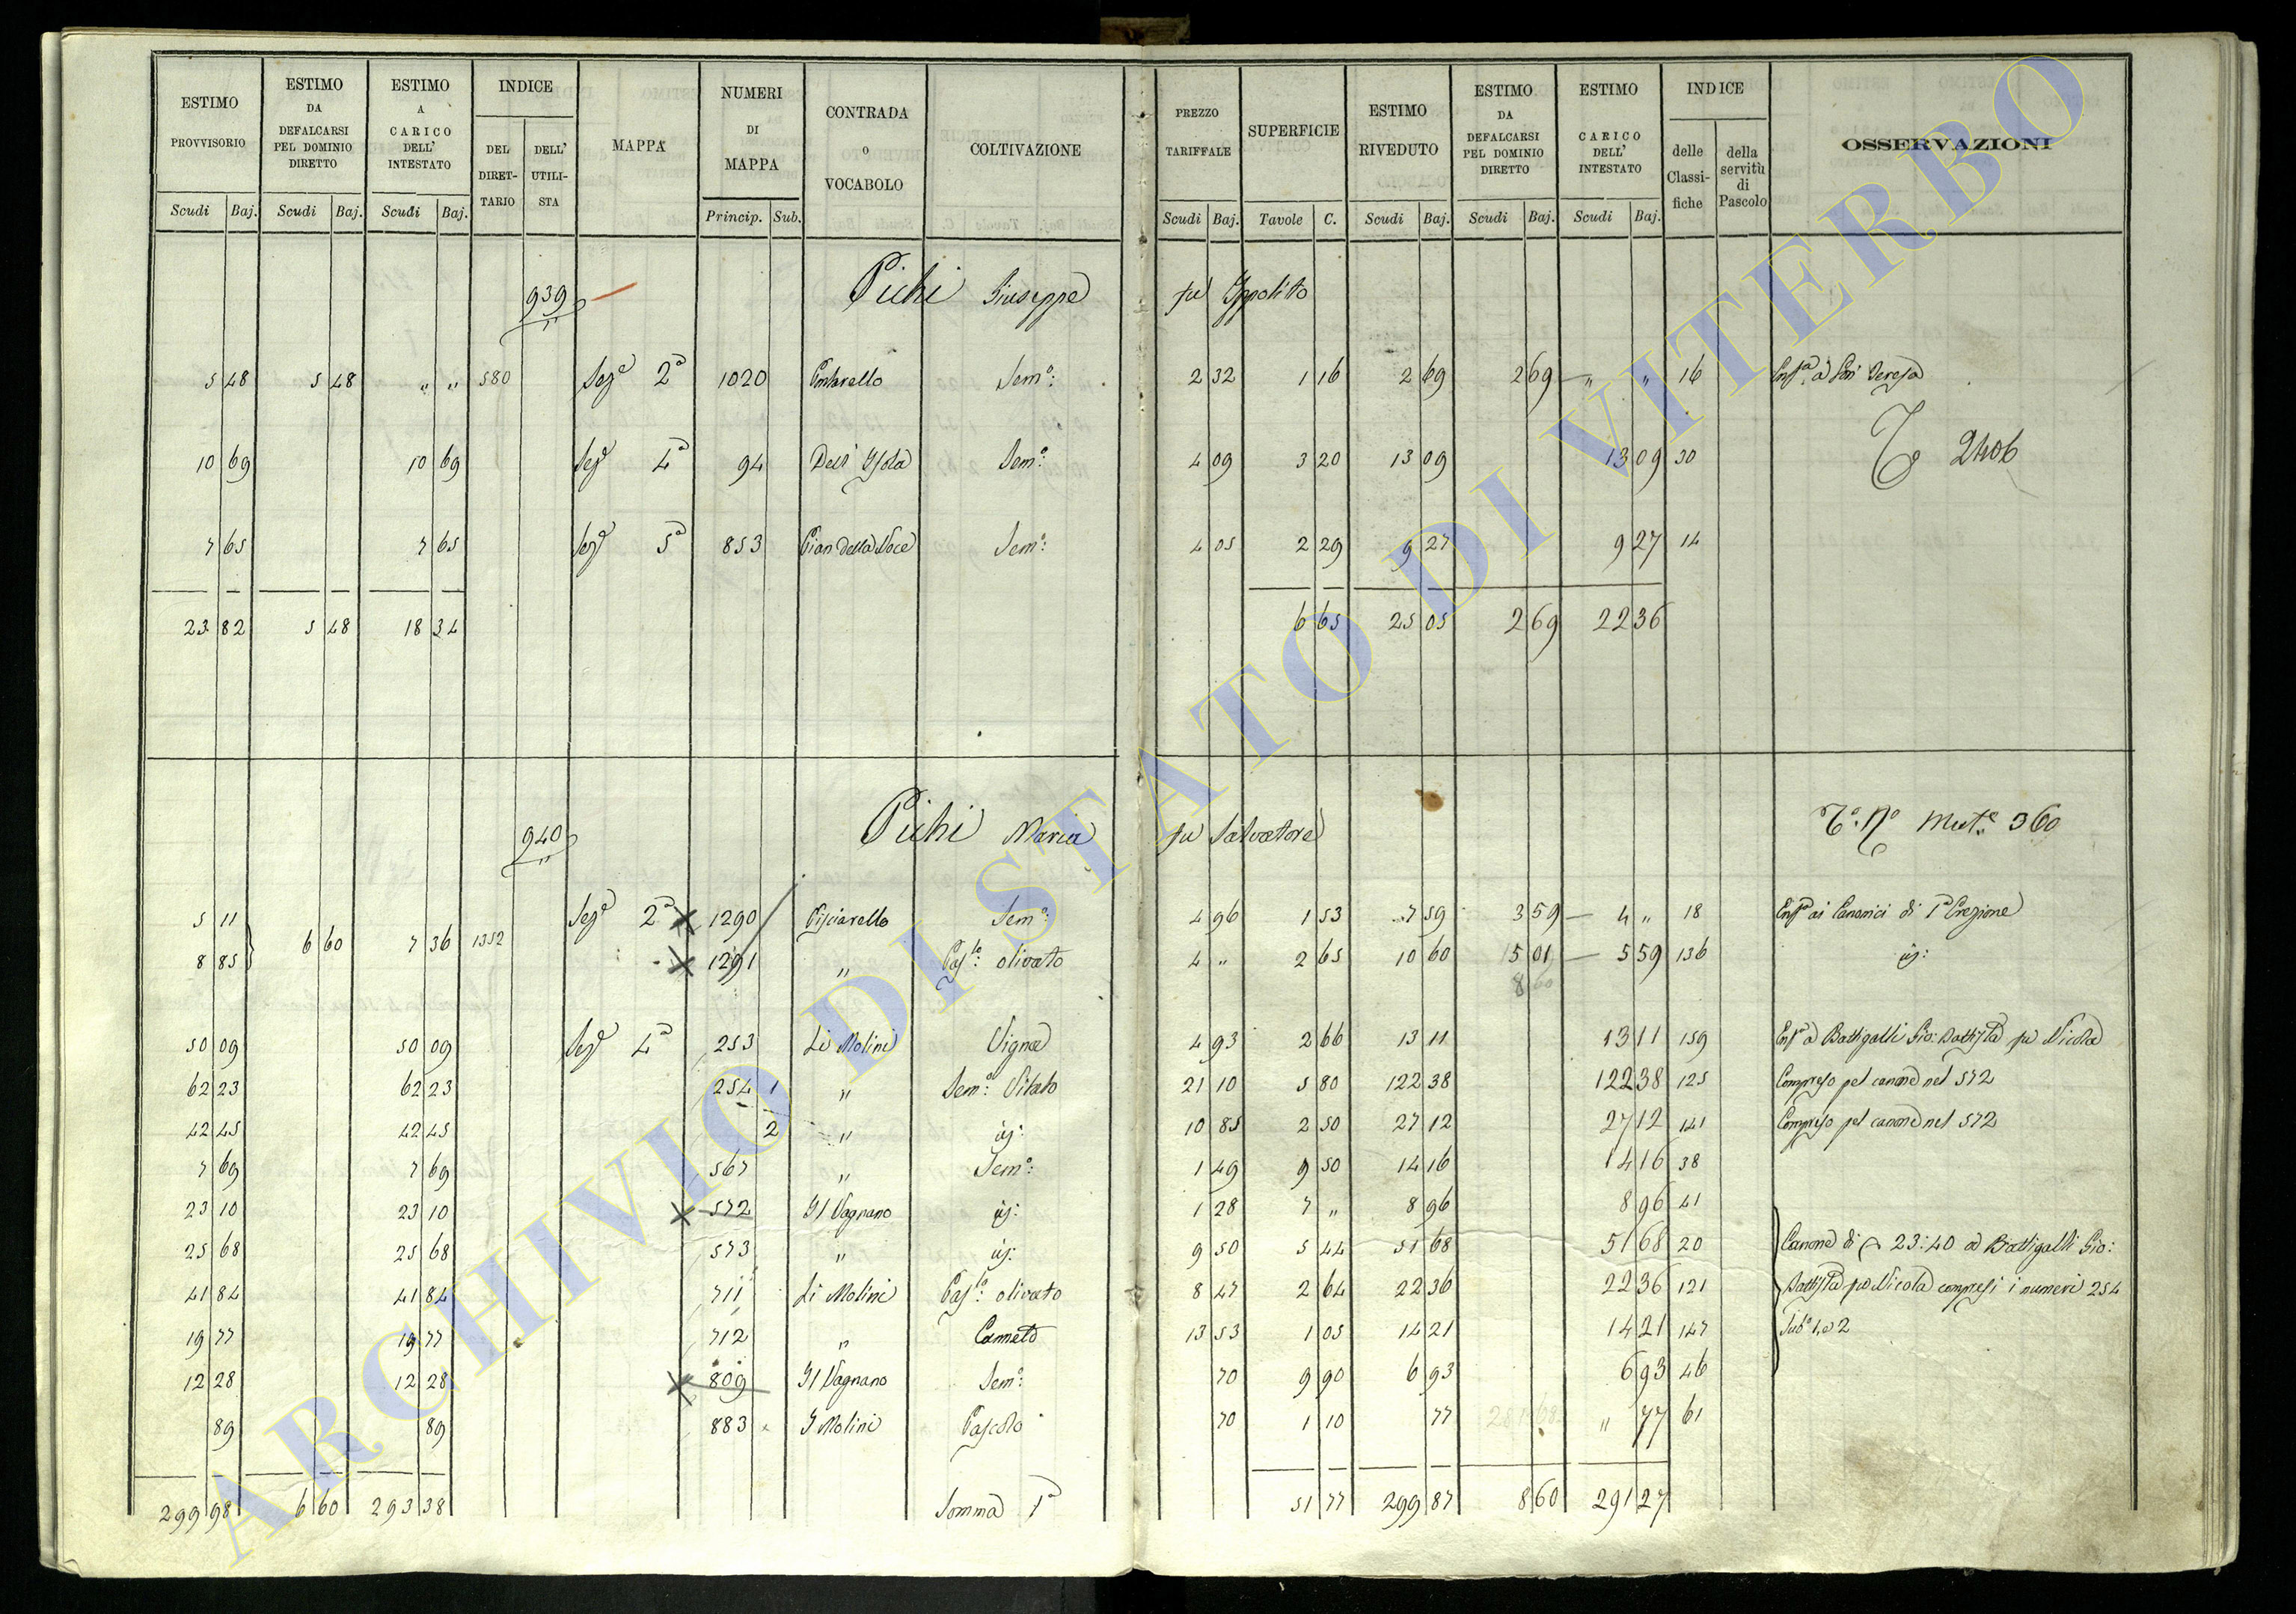 ESTIMO PROVVISORIO | ESTIMO DA DEFALCARSI PEL DOMINIO DIRETTO | ESTIMO A CARICO DELL' INTESTATO | INDICE DEL DIRET-TARIO | DELL' UTILI-STA | MAPPA | NUMERI DI MAPPA | CONTRADA O VOCABOLO | COLTIVAZIONE | PREZZO TARIFFALE | SUPERFICIE | ESTIMO RIVEDUTO | ESTIMO DA DEFALCARSI PEL DOMINIO DIRETTO | ESTIMO A CARICO DELL' INTESTATO | INDICE delle Classi-fiche | della servitù di Pascolo | OSSERVAZIONI
Scudi | Baj. | Scudi | Baj. | Scudi | Baj. | Princip. | Sub. | Scudi | Baj. | Tavole | C. | Scudi | Baj. | Scudi | Baj. | Scudi | Baj.
939 Pichi Giuseppe fu Ippolito
5 48 | 5 48 | " " | 580 | Sez.e 2a | 1020 | Sem.o: | 2 32 | 1 16 | 2 69 | 2 69 | " " | 16 | Enf.a a Teresa
T 2406
10 69 | 10 69 | Sez.e 4a | 94 | Dell' Isola | Sem.o: | 4 09 | 3 20 | 13 09 | 13 09 | 30
7 65 | 7 65 | Sez.e 5a | 853 | Pian della Noce | Sem.o: | 4 05 | 2 29 | 9 27 | 9 27 | 14
23 82 | 5 48 | 18 34 | 6 65 | 25 05 | 2 69 | 22 36
940 Pichi Maria fu Salvatore
T.o: N.o Mut.e 360
5 11 | 6 60 | 7 36 | 1352 | Sez.e 2a | 1290 | Pisciarello | Sem.o: | 4 96 | 1 53 | 7 59 | 3 59 | 4 " | 18 | Enf.a ai Canonici di 1a Erezione
8 85 | 1291 | " | Pas.lo: olivato | 4 " | 2 65 | 10 60 | 5 01 | 5 59 | 136 | id:
8 60
50 09 | 50 09 | Sez.e 4a | 253 | Li Molini | Vigna | 4 93 | 2 66 | 13 11 | 13 11 | 159 | Enf.a a Battigalli Gio: Battista fu Nicola
62 23 | 62 23 | 254 | 1 | " | Sem.o: Vitato | 21 10 | 5 80 | 122 38 | 122 38 | 125 | Compreso pel canone nel 572
42 45 | 42 45 | 2 | " | id: | 10 85 | 2 50 | 27 12 | 27 12 | 141 | Compreso pel canone nel 572
7 69 | 7 69 | 567 | " | Sem.o: | 1 49 | 9 50 | 14 16 | 14 16 | 38
23 10 | 23 10 | 572 | Il Vagnano | id: | 1 28 | 7 " | 8 96 | 8 96 | 41
25 68 | 25 68 | 573 | " | id: | 9 50 | 5 44 | 51 68 | 51 68 | 20 | Canone di 23:40 a Battigalli Gio:
41 84 | 41 84 | 711 | Li Molini | Pas.lo: olivato | 8 47 | 2 64 | 22 36 | 22 36 | 121 | Battista fu Nicola compresi i numeri 254
19 77 | 19 77 | 712 | " | Canneto | 13 53 | 1 05 | 14 21 | 14 21 | 147 | Sub.o 1, e 2
12 28 | 12 28 | 809 | Il Vagnano | Sem.o: | 70 | 9 90 | 6 93 | 6 93 | 46
89 | 89 | 883 | I Molini | Pascolo | 70 | 1 10 | 77 | " 77 | 61
299 98 | 6 60 | 293 38 | Somma 1a | 51 77 | 299 87 | 8 60 | 291 27
ARCHIVIO DI STATO DI VITERBO